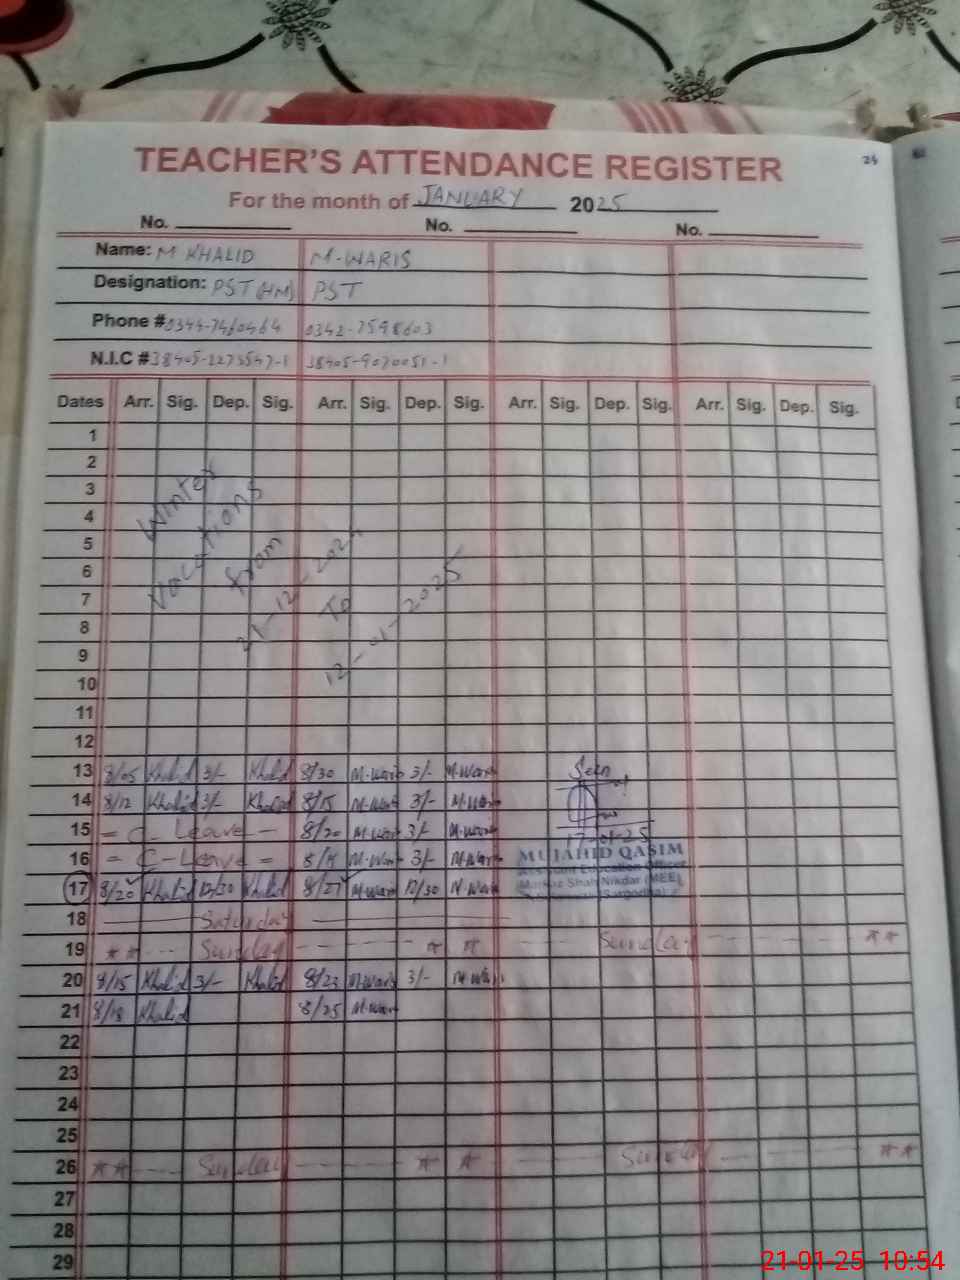 24
TEACHER'S ATTENDANCE REGISTER
For the month of JANUARY 2025
No. No. No.
Name: M KHALID M-WARIS
Designation: PST (HM) PST
Phone # 0344-7460464 0342-7598603
N.I.C # 38405-2273547-1 38405-9070051-1
Dates Arr. Sig. Dep. Sig. Arr. Sig. Dep. Sig. Arr. Sig. Dep. Sig. Arr. Sig. Dep. Sig.
1
2
3
4
5
6
7
8
9
10
11
12
Winter
Vacations
from
21-12-2024
To
12-01-2025
13 8/05 Khalid 3/- Khalid 8/30 M-Waris 3/- M-Waris Seen
14 8/12 Khalid 3/- Khalid 8/15 M-Waris 3/- M-Waris
15 = C-Leave - 8/20 M-Waris 3/- M-Waris 17-01-25
16 = C-Leave = M-Waris 3/- M-Waris
MUJAHID QASIM
Assistant Education Officer
Markaz Shah Nikdar (MEE)
(Sargodha)
17 8/20 Khalid 12/30 Khalid 8/27 M-Waris 12/30 M-Waris
18 Saturday
19 ** Sunday * * Sunday **
20 8/15 Khalid 3/- Khalid 8/23 M-Waris 3/- M-Waris
21 8/18 Khalid 8/25 M-Waris
22
23
24
25
26 ** Sunday * * Sunday **
27
28
29
21-01-25 10:54